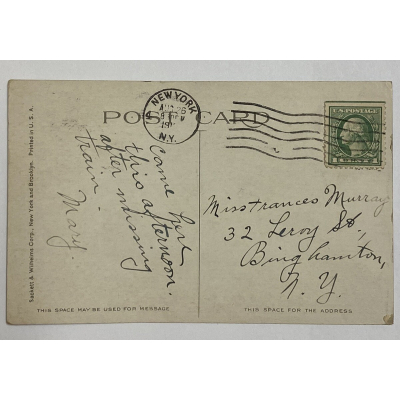 POST CARD
NEW YORK
N.Y.
U.S. POSTAGE
Sackett & Wilhelms Corp., New York and Brooklyn. Printed in U. S. A.
Come here
this afternoon.
after missing
train.
Mary.
Miss Frances Murray
32 Leroy St.,
Binghamton,
N. Y.
THIS SPACE MAY BE USED FOR MESSAGE
THIS SPACE FOR THE ADDRESS